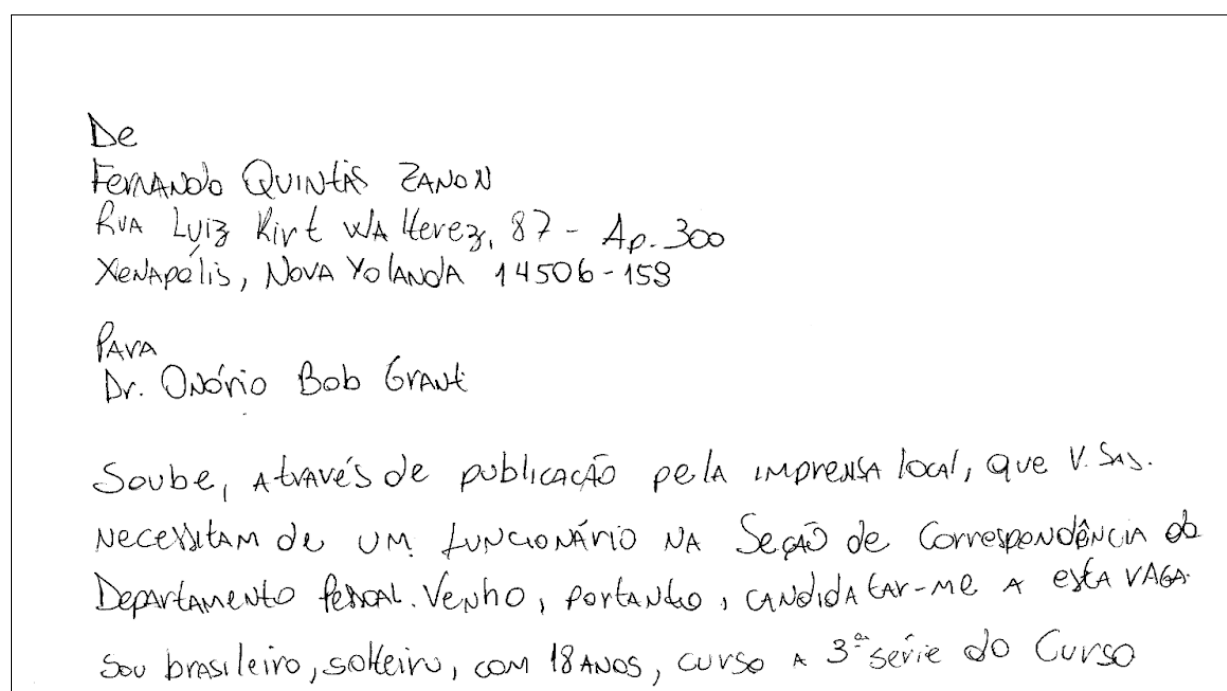 De
Fernando Quintas Zanon
Rua Luiz Kirt Walterez, 87 - Ap. 300
Xenapólis, Nova Yolanda 14506-159
Para
Dr. Onório Bob Grant
Soube, através de publicação pela imprensa local, que V. Sas.
necessitam de um funcionário na Seção de Correspondência do
Departamento Pessoal. Venho, portanto, candidatar-me a esta vaga.
Sou brasileiro, solteiro, com 18 anos, curso a 3ª série do Curso